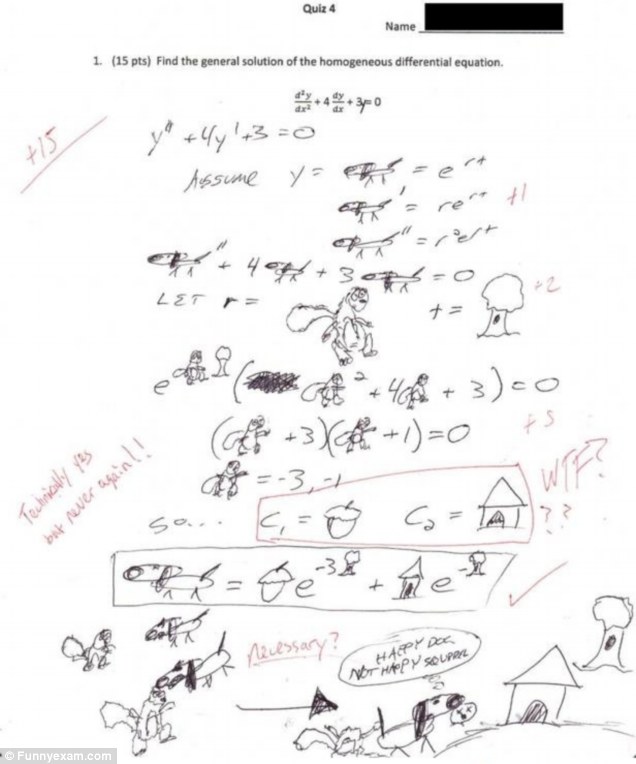 Quiz 4
Name
1. (15 pts) Find the general solution of the homogeneous differential equation.
d²y/dx² + 4 dy/dx + 3y=0
+15
y" + 4y' + 3 = 0
Assume y = = e^rt
' = re^rt +1
" = r²e^rt
" + 4 ' + 3 = 0
LET r = t = +2
e ( ² + 4 + 3) = 0
( + 3)( + 1) = 0 +5
= -3, -1
Technically yes
but never again!!
WTF?
??
SO... C₁ = C₂ =
= e^-3 + e^-
necessary?
HAPPY DOG
NOT HAPPY SQUIRREL
© Funnyexam.com